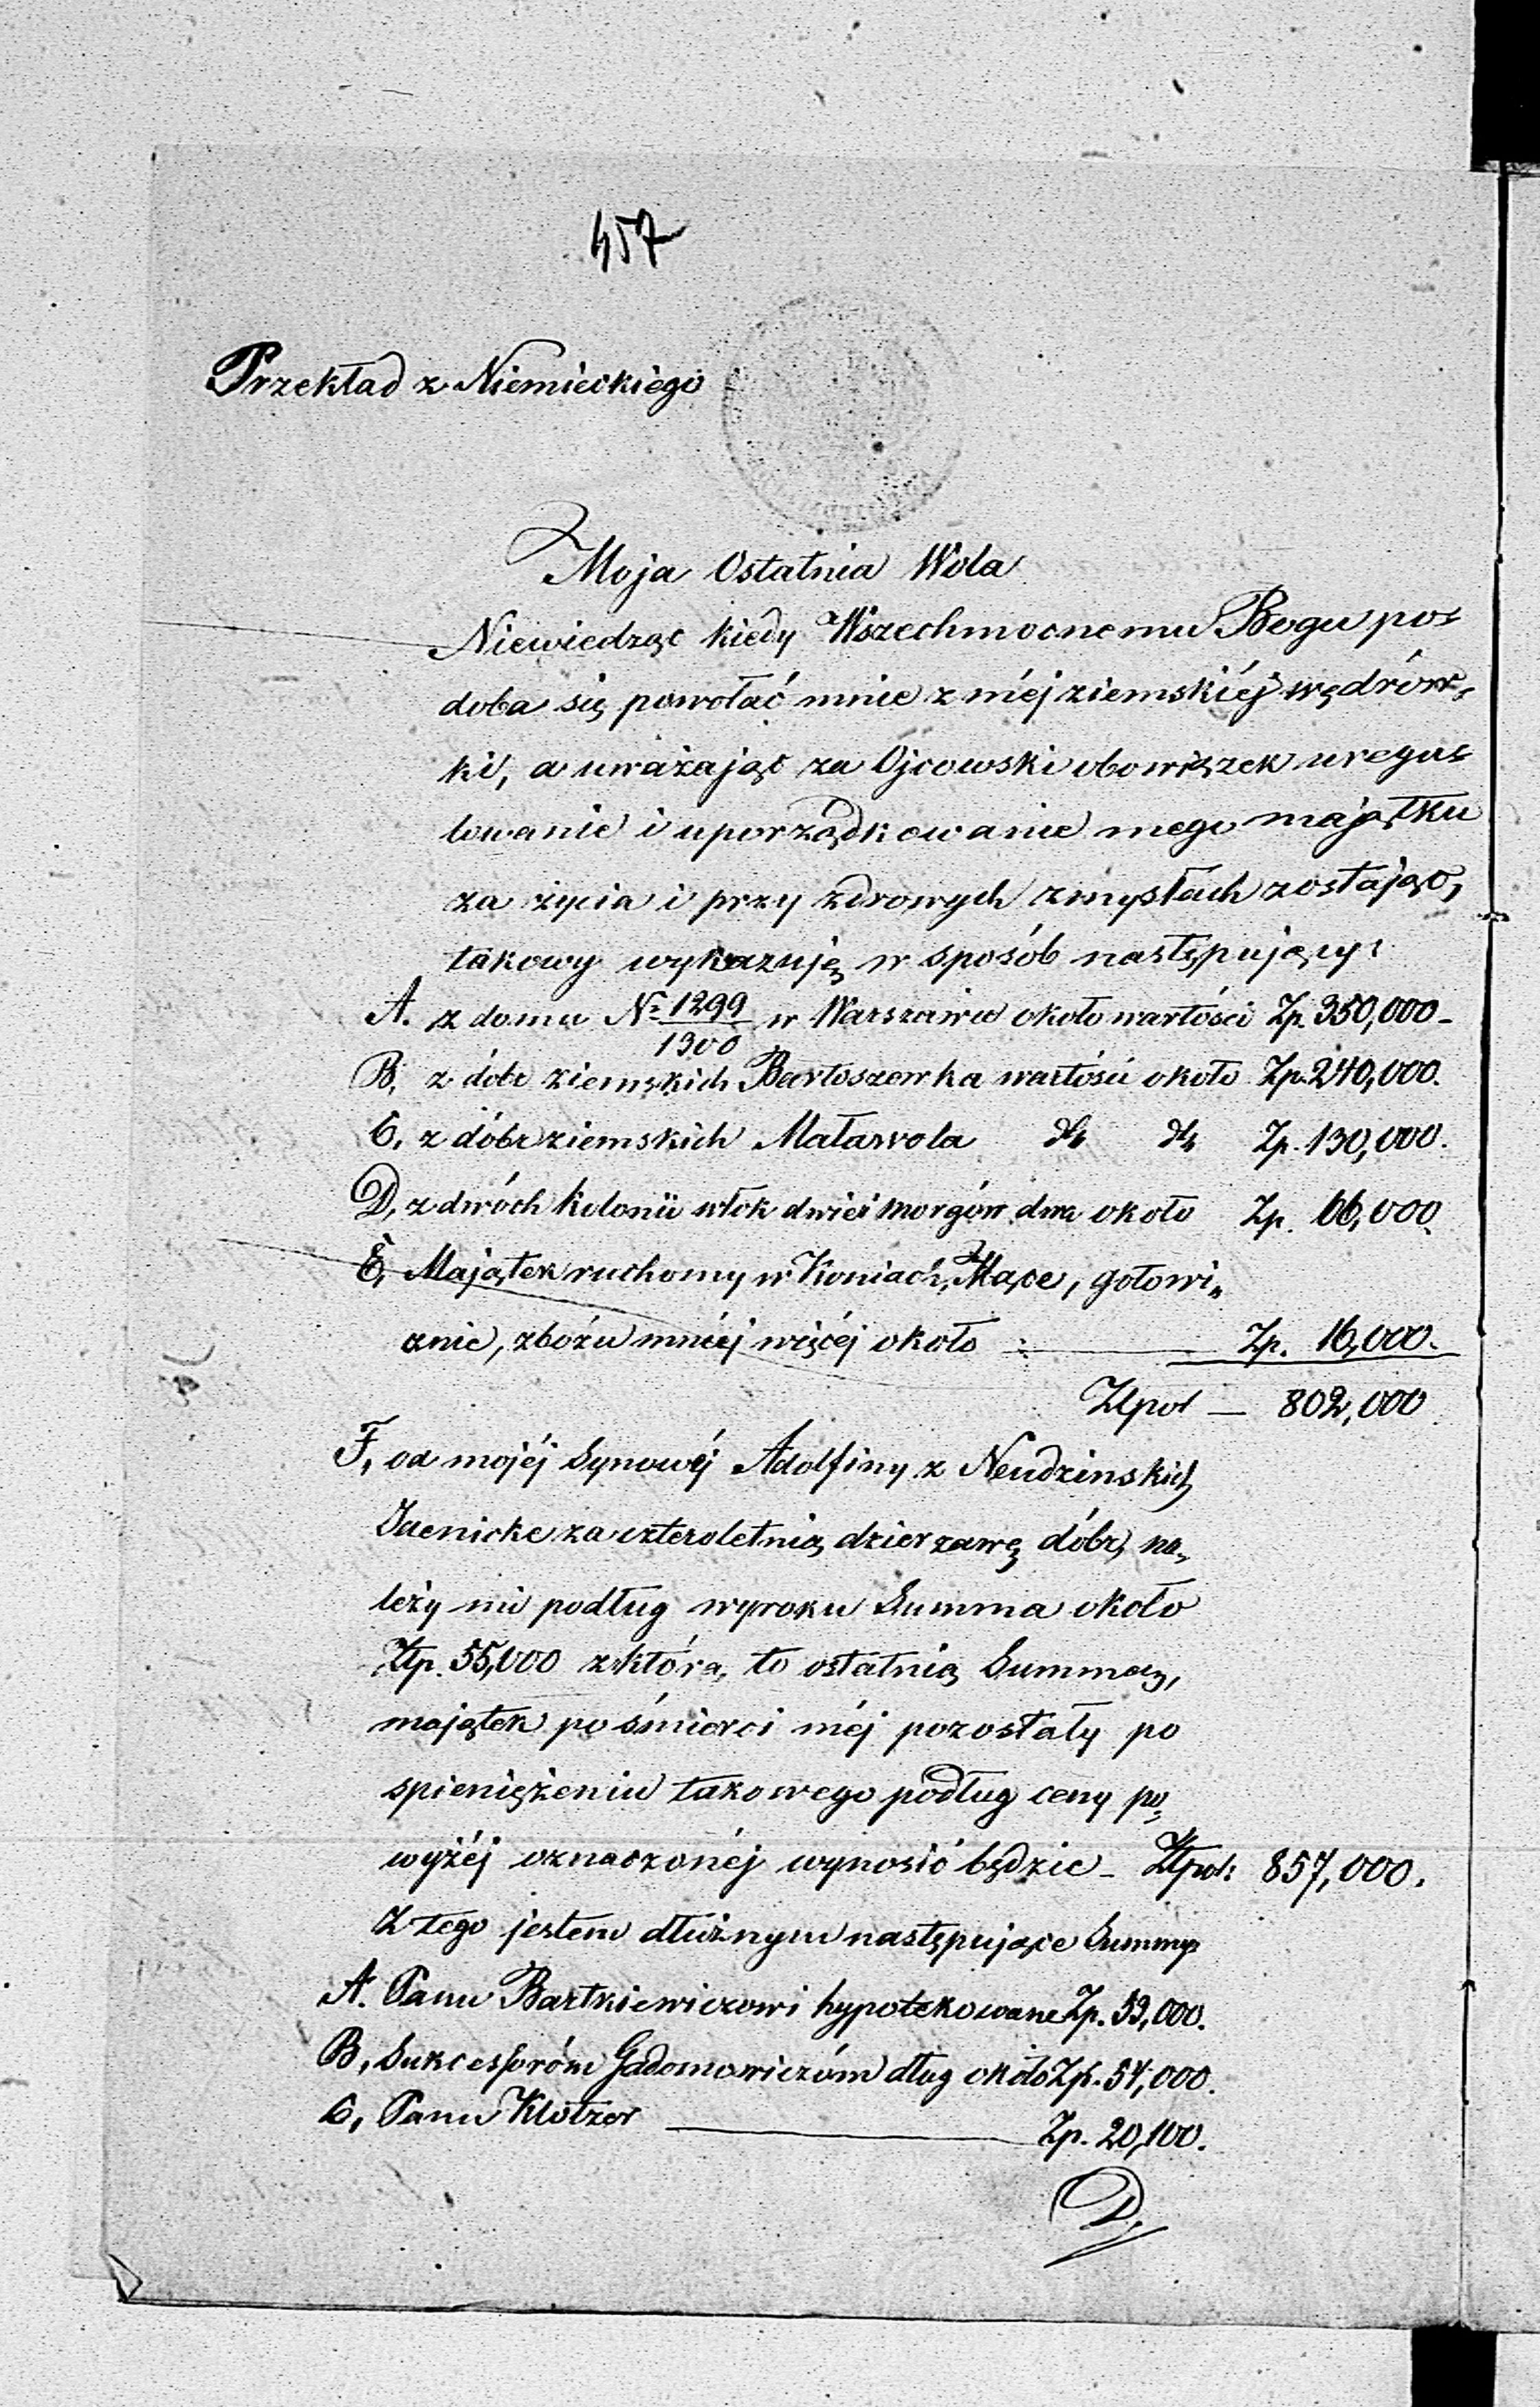 457
Przekład z Niemieckiego
Moja Ostatnia Wola
Niewiedząc kiedy Wszechmocnemu Bogu po=
doba się powołać mnie z méj ziemskiéj wędrów=
ki, a uważając za Ojcowski obowiązek uregu=
lowanie i uporządkowanie mego majątku
za życia i przy zdrowych zmysłach zostając,
takowy wykazuję w sposób następujący:
A. z domu No 1299/1300 w Warszawie około wartości Zp. 350,000 -
B, z dóbr ziemskich Bartoszowka wartości około Zp. 240,000.
C, z dóbr ziemskich Maławola dto dto Zp. 130,000.
D, z dwóch kolonii włok dwie i morgów dwa około Zp. 66,000.
E, Majątek ruchomy w Koniach, Mące, gotowi=
znie, zbożu mniéj więcéj około : — Zp. 16,000.
Zlpol — 802,000
F, od mojéj Synowéj Adolfiny z Neudzinskich
Jaenicke za czteroletnią dzierzawę dóbr, na=
leży mi podług wyroku Summa około
Złp. 55,000 z którą to ostatnią Summą,
majątek po śmierci méj pozostały po
spieniężeniu takowego podług ceny po=
wyżéj oznaczonéj wynosić będzie - Złpol: 857,000.
Z tego jestem dłużnym następujące Summy
A. Panu Bartkiewiczowi hypotekowane Zp. 53,000.
B, Sukcessorom Gadomowiczóm dług około Zp. 54,000.
C, Panu Klotzer — Zp. 20,100.
D,